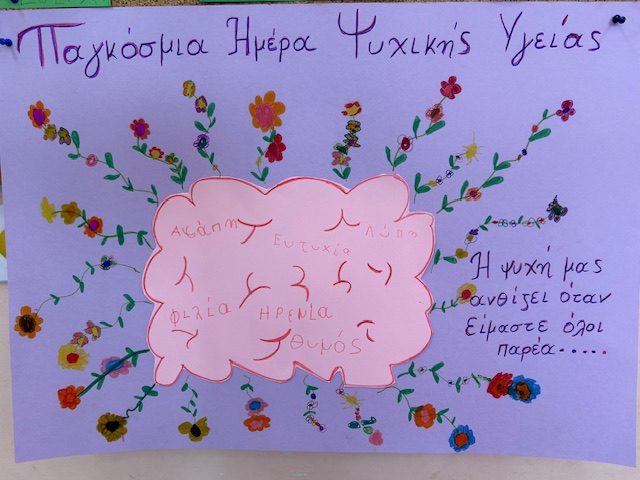 Παγκόσμια Ημέρα Ψυχικής Υγείας
Αγάπη
Ευτυχία
Λύπη
Φιλία
ΗΡΕΝΙΑ
Θυμός
Η ψυχή μας
ανθίζει όταν
είμαστε όλοι
παρέα......